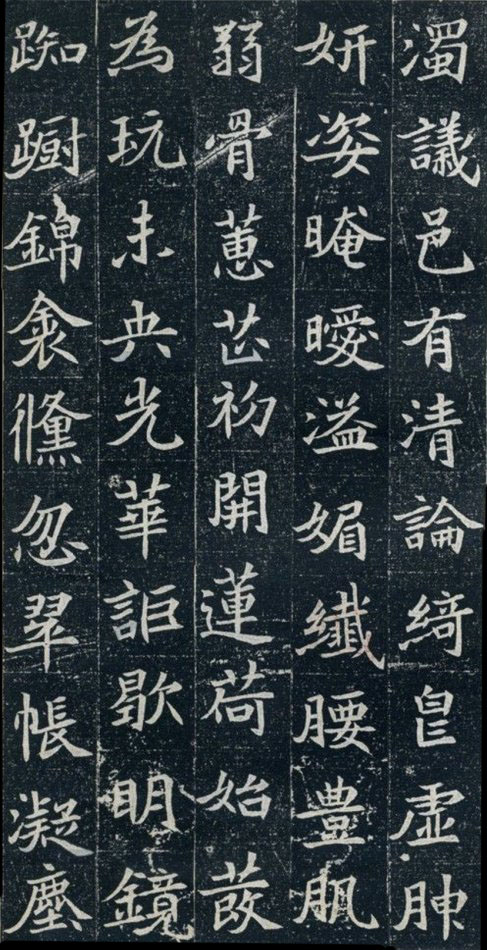 濁議邑有清論綺皃虛胂
妍姿晻曖溢媚纖腰豊肌
弱骨蕙芷初開蓮荷始
為玩未央光華詎歇明鏡
踟蹰錦衾儵忽翠帳凝塵